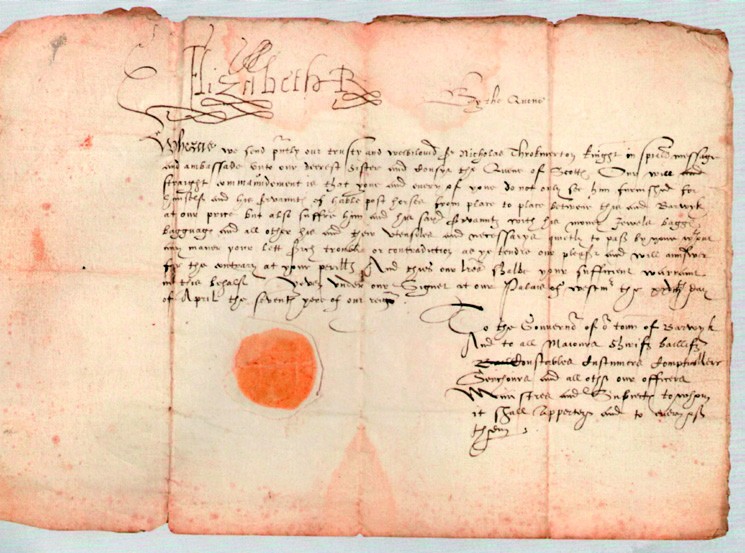 Elizabeth R
By the Quene
Whereas we send pntly our trusty and welbiloved Sr Nicholas Throkmorton knight in speciall message
and ambassade unto our derest Sister and Cousyn the Quene of Scotts Our will and
straight commaundement is that youe and every of youe do not only se him furnished for
himself and his servaunts of hable post horses from place to place betwene this and Barwyk
at our price but also suffre him and his said servaunts with his money Jewels bagges
bagguage and all other his and their utensiles and necessaryes quietly to passe by youe without
any maner your lett serch trouble or contradiction as ye tendre our pleasr and will aunswer
for the contrary at your perills And thies our lres shalbe your sufficient warrant
in this behalf Yeven under our Signet at our Palais of Westmr the day
of April the seventh yere of our reign
To the Governor of or town of Barwyk
And to all Maiours Shrifs bailiffs
Constables Custumers Comptrollers
Serchours and all othr our officers
Ministres and Subiects to whom
it shall apperteyn and to every of
them